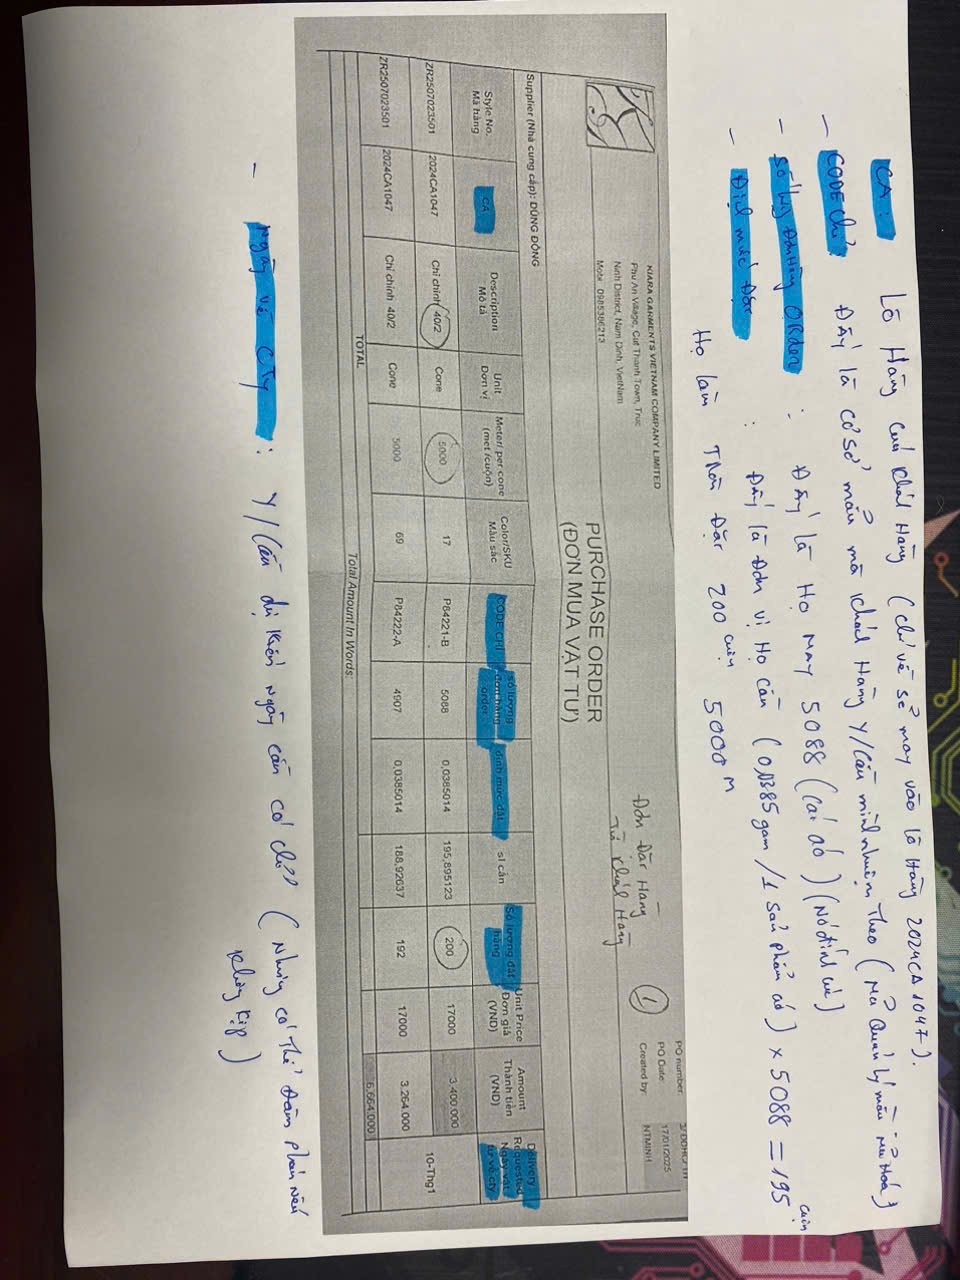 CA : Lô Hàng của Khách Hàng (chỉ về sẽ may vào lô Hàng 2024CA1047).
- CODE chỉ : Đây là cơ sở mẫu mà Khách Hàng Y/Cầu mình nhuộm Theo (Mã Quản Lý mẫu Mã Hoá)
- Số lượng Đơn Hàng ORder : Đây là Họ MAY 5088 (cái áo) (Nó đính cúc)
- Địch mức Đặt : Đây là Đơn vị Họ cần (0,0385 gam / 1 sản phẩm áo) × 5088 = 195 cuộn
Họ làm Tròn Đặt 200 cuộn 5000 M
KIARA GARMENTS VIETNAM COMPANY LIMITED
Phu An Village, Cut Thanh Town, Truc
Ninh District, Nam Dinh, VietNam
Mobi 0985386213
1
Đơn Đặt Hàng
Từ Khách Hàng
PO number:
PO Date: 17/01/2025
Created by: NTMINH
PURCHASE ORDER
(ĐƠN MUA VẬT TƯ)
Supplier (Nhà cung cấp): DŨNG ĐÔNG
Style No. Mã hàng CA Description Mô tả Unit Đơn vị Meter/ per cone (met /cuộn) Color/SKU Màu sắc CODE CHỈ số lượng đơn hàng order định mức đặt sl cần Số lượng đặt hàng Unit Price Đơn giá (VND) Amount Thành tiền (VND) Delivery Requested Ngày vật tư về cty
ZR2507023501 2024CA1047 Chỉ chính 40/2 Cone 5000 17 P84221-B 5088 0,0385014 195,895123 200 17000 3.400.000 10-Thg1
ZR2507023501 2024CA1047 Chỉ chính 40/2 Cone 5000 69 P84222-A 4907 0,0385014 188,92637 192 17000 3.264.000
TOTAL 6.664.000
Total Amount In Words:
- Ngày về CTy : Y/Cầu dự kiến ngày cần có chỉ (Nhưng có Thể Đàm phán nếu
không kịp)